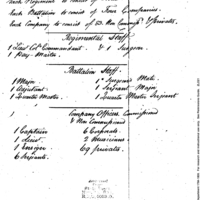 each Regiment to consist of
each Battalion to consist of Four Companies.
each Company to consist of 83 Non Commiss.d & Privates.
Regimental Staff
1 Lieut Col.l Commandant & 1 Surgeon
1 Pay Master
Battalion Staff.
1 Major 1 Surgeons Mate
1 Adjutant 1 Serjeant Major
1 Quarter Master 1 Quarter Master Serjeant
Company Officers, Commissioned
& Non Commissioned
1 Captain 6 Corporals
1 Lieut 2 Musicians
1 Ensign 69 privates
6 Serjeants